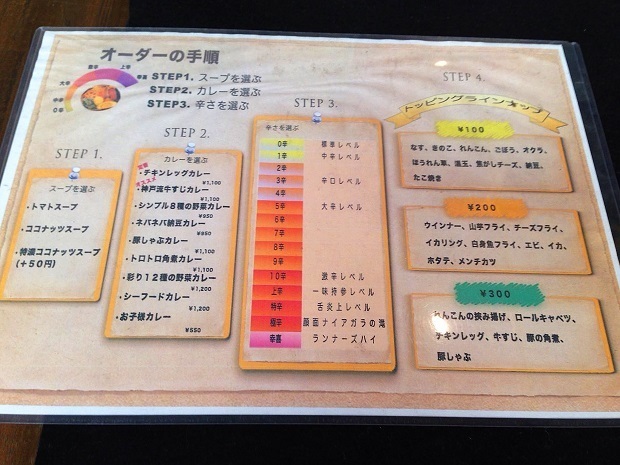 オーダーの手順
STEP1. スープを選ぶ
STEP2. カレーを選ぶ
STEP3. 辛さを選ぶ
STEP 1.
スープを選ぶ
・トマトスープ
・ココナッツスープ
・特濃ココナッツスープ
(+50円)
STEP 2.
カレーを選ぶ
・チキンレッグカレー
¥1,100
・神戸流牛すじカレー
¥1,100
・シンプル8種の野菜カレー
¥950
・ネバネバ納豆カレー
¥950
・豚しゃぶカレー
¥1,100
・トロトロ角煮カレー
¥1,100
・彩り12種の野菜カレー
¥1,200
・シーフードカレー
¥1,200
・お子様カレー
¥550
STEP 3.
辛さを選ぶ
0辛 標準レベル
1辛 中辛レベル
2辛
3辛 辛口レベル
4辛
5辛 大辛レベル
6辛
7辛
8辛
9辛
10辛 激辛レベル
上辛 一味持参レベル
特辛 舌炎上レベル
極辛 顔面ナイアガラの滝
幸喜 ランナーズハイ
STEP 4.
トッピングラインナップ
¥100
なす、きのこ、れんこん、ごぼう、オクラ、
ほうれん草、温玉、焦がしチーズ、納豆、
たこ焼き
¥200
ウインナー、山芋フライ、チーズフライ、
イカリング、白身魚フライ、エビ、イカ、
ホタテ、メンチカツ
¥300
れんこんの挟み揚げ、ロールキャベツ、
チキンレッグ、牛すじ、豚の角煮、
豚しゃぶ